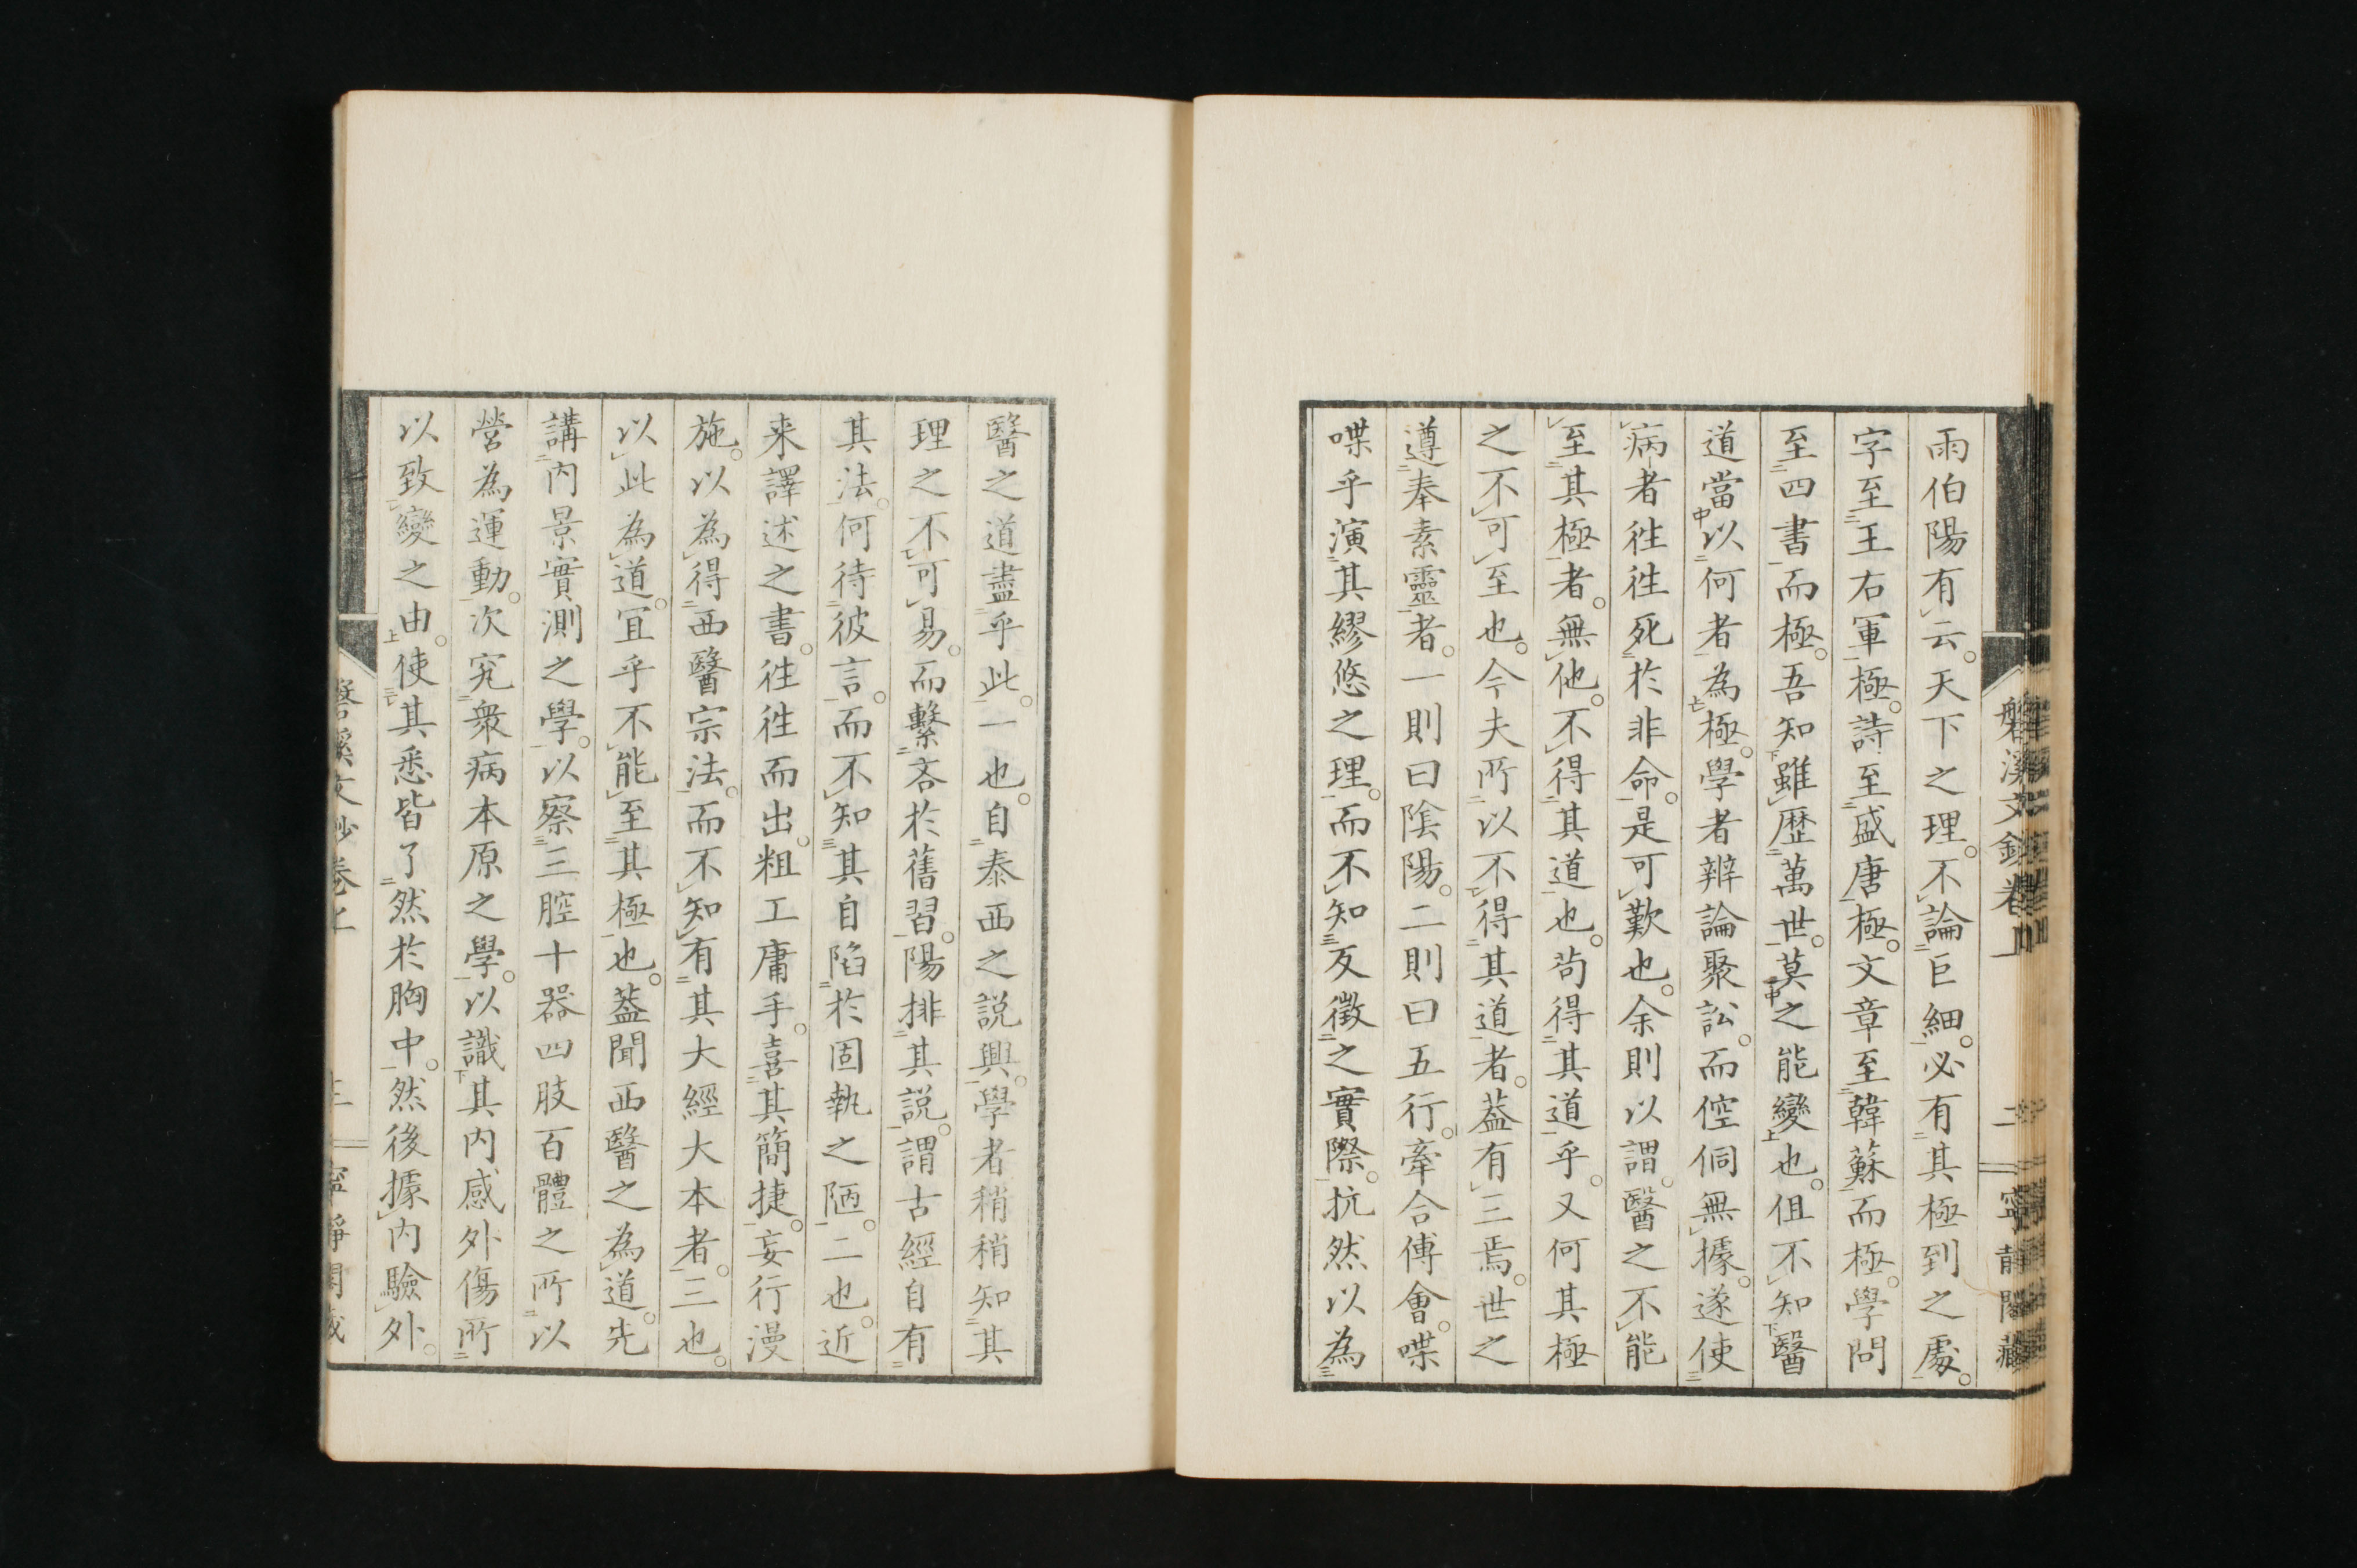 雨伯陽有云。天下之理。不論巨細。必有其極到之處。
字至王右軍極。詩至盛唐極。文章至韓蘇而極。學問
至四書而極。吾知雖歷萬世。莫之能變也。但不知醫
道當以何者為極。學者辨論聚訟。而倥侗無據。遂使
病者徃徃死於非命。是可歎也。余則以謂。醫之不能
至其極者。無他。不得其道也。苟得其道乎。又何其極
之不可至也。今夫所以不得其道者。葢有三焉。世之
遵奉素靈者。一則曰陰陽。二則曰五行。牽合傅會。喋
喋乎演其繆悠之理。而不知反徵之實際。抗然以為
磐溪文鈔卷上 二 寧靜閣藏
醫之道盡乎此。一也。自泰西之説興。學者稍稍知其
理之不可易。而繫吝於舊習。陽排其説。謂古經自有
其法。何待彼言。而不知其自陷於固執之陋。二也。近
来譯述之書。徃徃而出。粗工庸手。喜其簡捷。妄行漫
施。以為得西醫宗法。而不知有其大經大本者。三也。
以此為道。宜乎不能至其極也。葢聞西醫之為道。先
講内景實測之學。以察三腔十器四肢百體之所以
營為運動。次究衆病本原之學。以識其内感外傷所
以致變之由。使其悉皆了然於胸中。然後據内驗外。